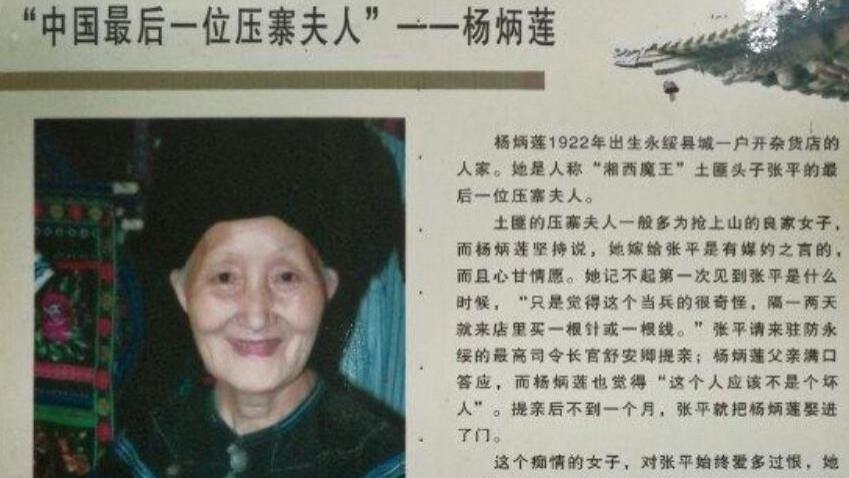 “中国最后一位压寨夫人”——杨炳莲
杨炳莲1922年出生永绥县城一户开杂货店的
人家。她是人称“湘西魔王”土匪头子张平的最
后一位压寨夫人。
土匪的压寨夫人一般多为抢上山的良家女子，
而杨炳莲坚持说，她嫁给张平是有媒妁之言的，
而且心甘情愿。她记不起第一次见到张平是什么
时候，“只是觉得这个当兵的很奇怪，隔一两天
就来店里买一根针或一根线。”张平请来驻防永
绥的最高司令长官舒安卿提亲；杨炳莲父亲满口
答应，而杨炳莲也觉得“这个人应该不是个坏
人”。提亲后不到一个月，张平就把杨炳莲娶进
了门。
这个痴情的女子，对张平始终爱多过恨，她